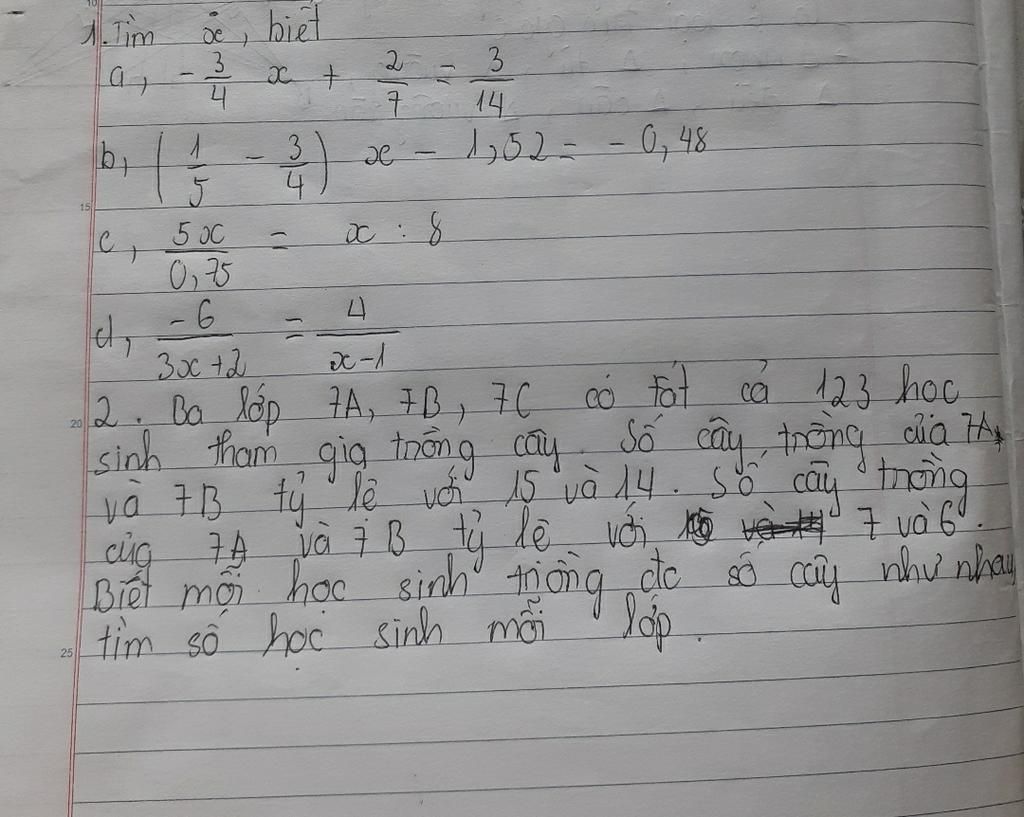 1. Tìm x, biết
a, - 3/4 x + 2/7 = 3/14
b, (1/5 - 3/4) x - 1,52 = - 0,48
c, 5x/0,75 = x : 8
d, -6/3x+2 = 4/x-1
2. Ba lớp 7A, 7B, 7C có tất cả 123 học
sinh tham gia trồng cây. Số cây trồng của 7A
và 7B tỷ lê với 15 và 14. Số cây trồng
của 7A và 7B tỷ lê với 7 và 6.
Biết mỗi học sinh trồng đc số cây như nhau
tìm số học sinh mỗi lớp.